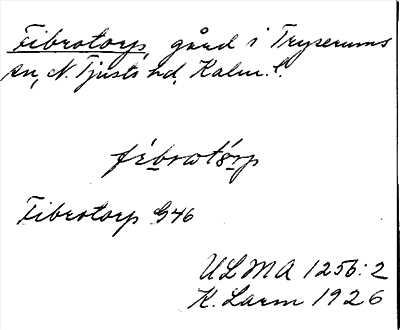 Fibrotorp, gård i Tryserums
sn, N. Tjusts hd, Kalm. l.
fi̱browtå̱rp
Fibrotorp G46
ULMA 1256:2
K. Larm 1926